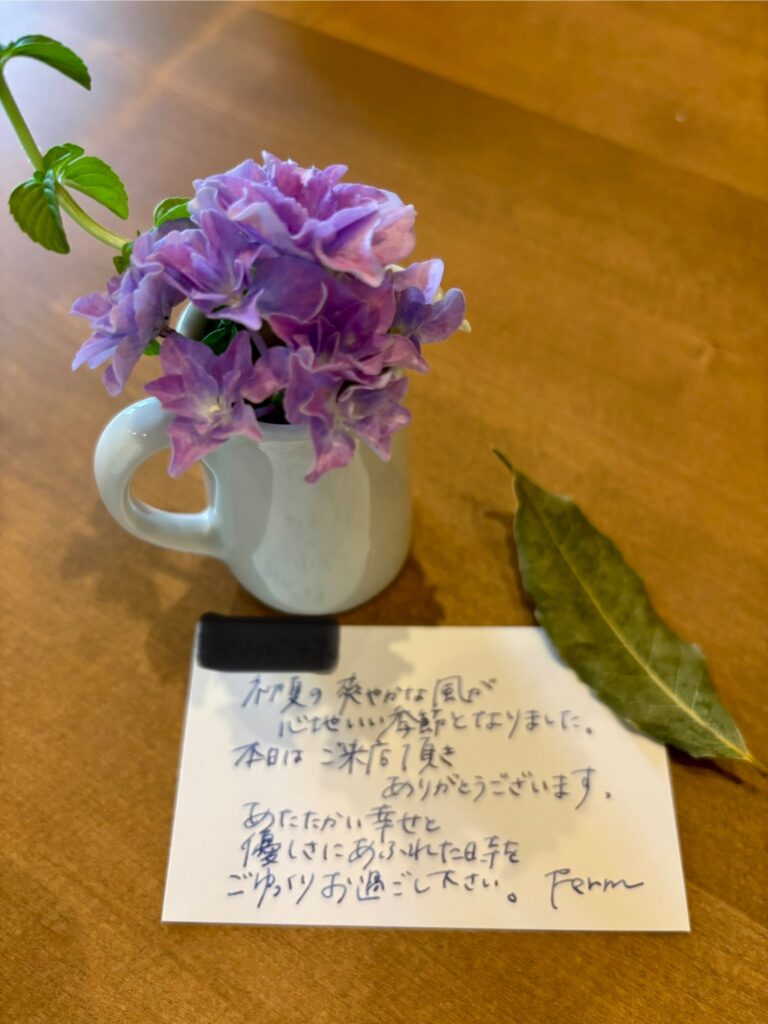 初夏の 爽やかな風が
心地いい季節となりました。
本日は ご来店頂き
ありがとうございます。
あたたかい幸せと
優しさにあふれた日時を
ごゆっくりお過ごし下さい。 Ferm